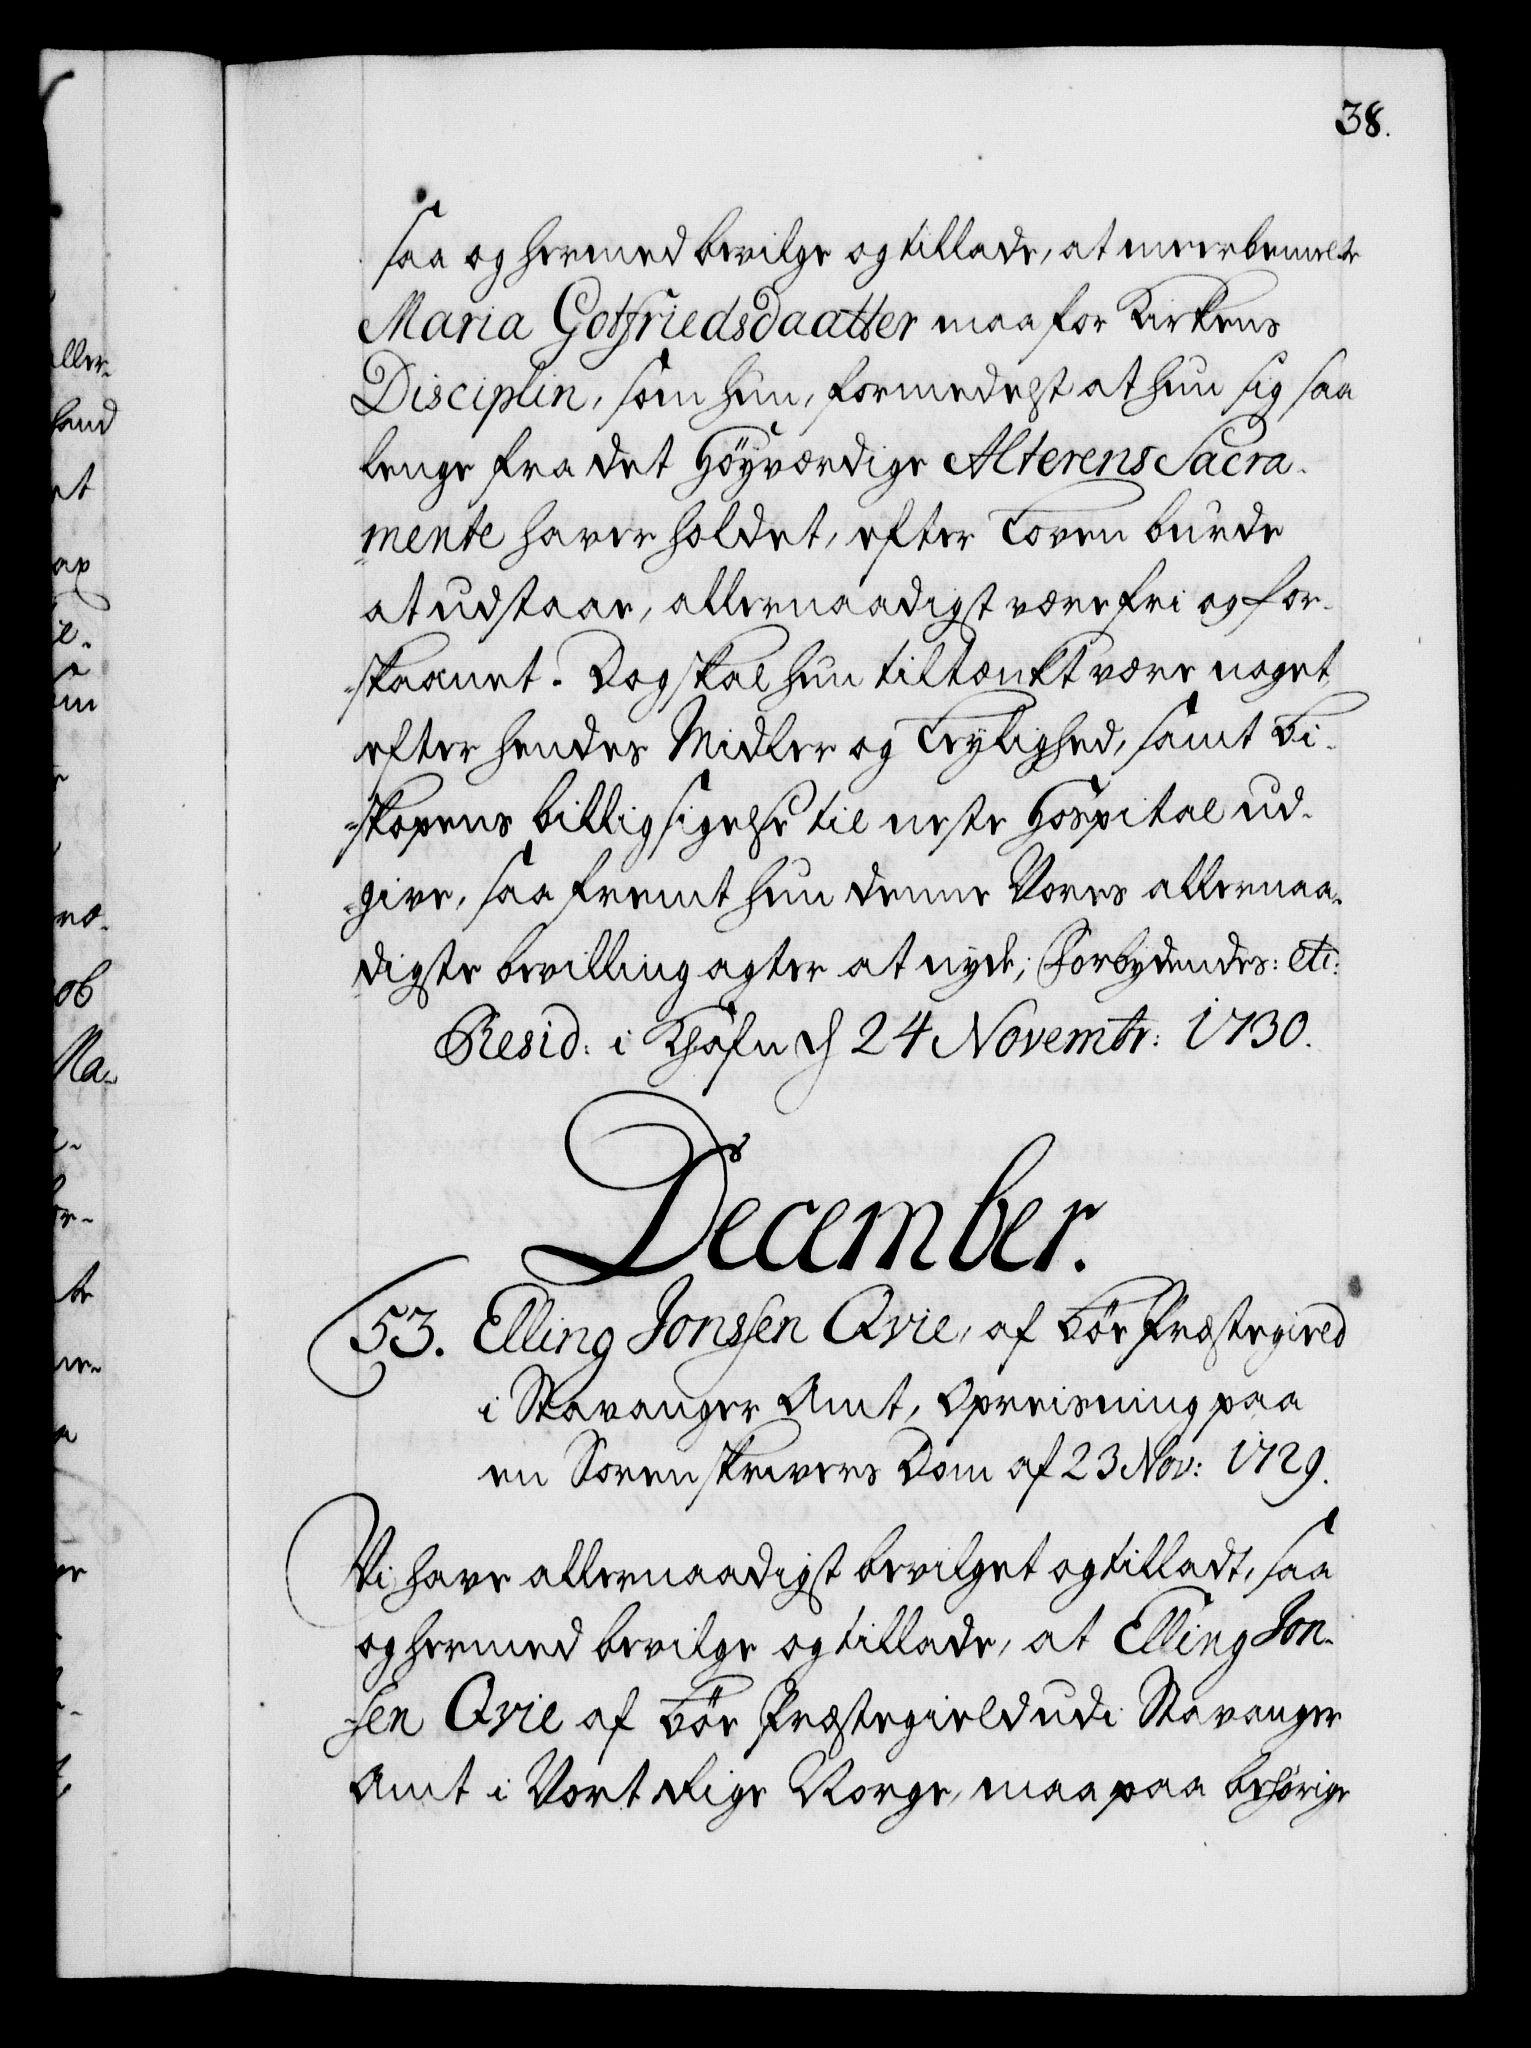 38.
saa og hermed bevilge og tillade, at meerbemelte
Maria Gotfriedsdaatter maa for Kirkens
Disciplin, som hun, formedelst at hun sig saa
lenge fra det Höyværdige Alterens Sacra-
mente haver holdet, efter Loven burde
at udstaae, allernaadigst være fri og for-
skaanet. Dog skal hun tiltænkt være noget
efter hendes Midler og Leylighed, samt Bi-
skopens billigsigelse til neste Hospital ud-
give, saa fremt hun denne Vores allernaa-
digste bevilling agter at nyde; Forbydendes: etc:
Resid: i Khafn d 24 Novembr: 1730.
December.
53. Elling Jonssen Qvie, af Böe Præstegield
i Stavanger Amt, Opreisning paa
en Sorenskrivers Dom af 23 Nov: 1729.
Vi have allernaadigst bevilget og tilladt, saa
og hermed bevilge og tillade, at Elling Jon-
sen Qvie af Böe Præstegield udi Stavanger
Amt i Vort Rige Norge, maa paa behörige